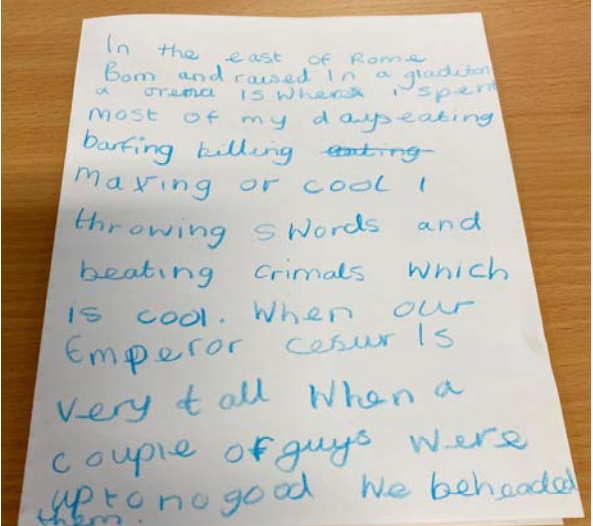 In the east of Rome
Born and raised In a gladitor
a arena is where i spent
most of my days eating
barfing killing eating
maxing or cool I
throwing swords and
beating crimals which
is cool. When our
Emperor cesur Is
very tall When a
couple of guys were
up to no good We beheaded
them.